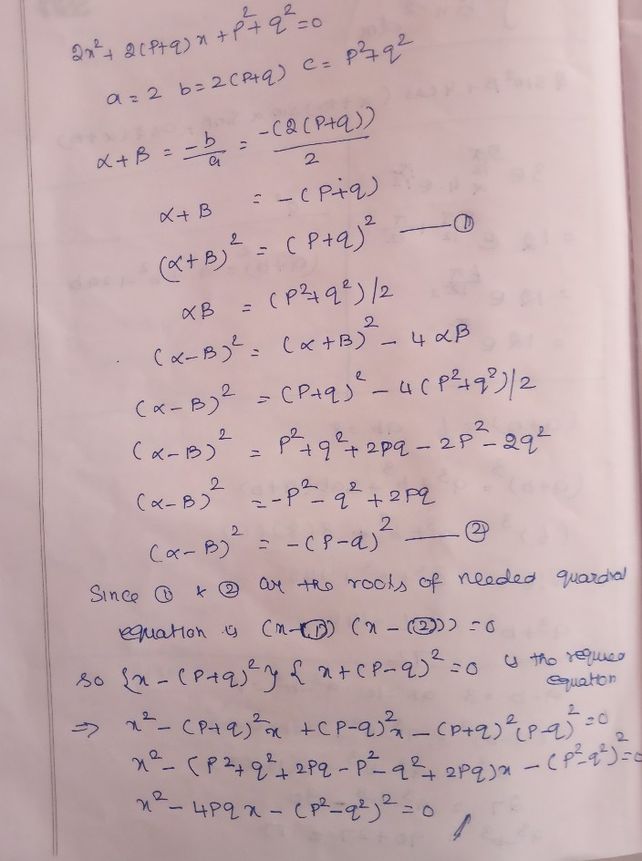 2x² + 2(p+q)x + p² + q² = 0
a = 2 b = 2(p+q) c = p² + q²
α + β = -b/a = -(2(p+q))/2
α + β = -(p+q)
(α+β)² = (p+q)² —— ①
αβ = (p²+q²)/2
(α-β)² = (α+β)² - 4αβ
(α-β)² = (p+q)² - 4(p²+q²)/2
(α-β)² = p²+q²+2pq - 2p² - 2q²
(α-β)² = -p² - q² + 2pq
(α-β)² = -(p-q)² —— ②
Since ① & ② are the roots of needed
equation is (x-①) (x-(②)) = 0
so {x - (p+q)²} { x + (p-q)² = 0 is the
equation
⇒ x² - (p+q)²x + (p-q)²x - (p+q)²(p-q)² = 0
x² - (p²+q²+2pq - p² - q² + 2pq)x - (p²-q²)² = 0
x² - 4pqx - (p²-q²)² = 0